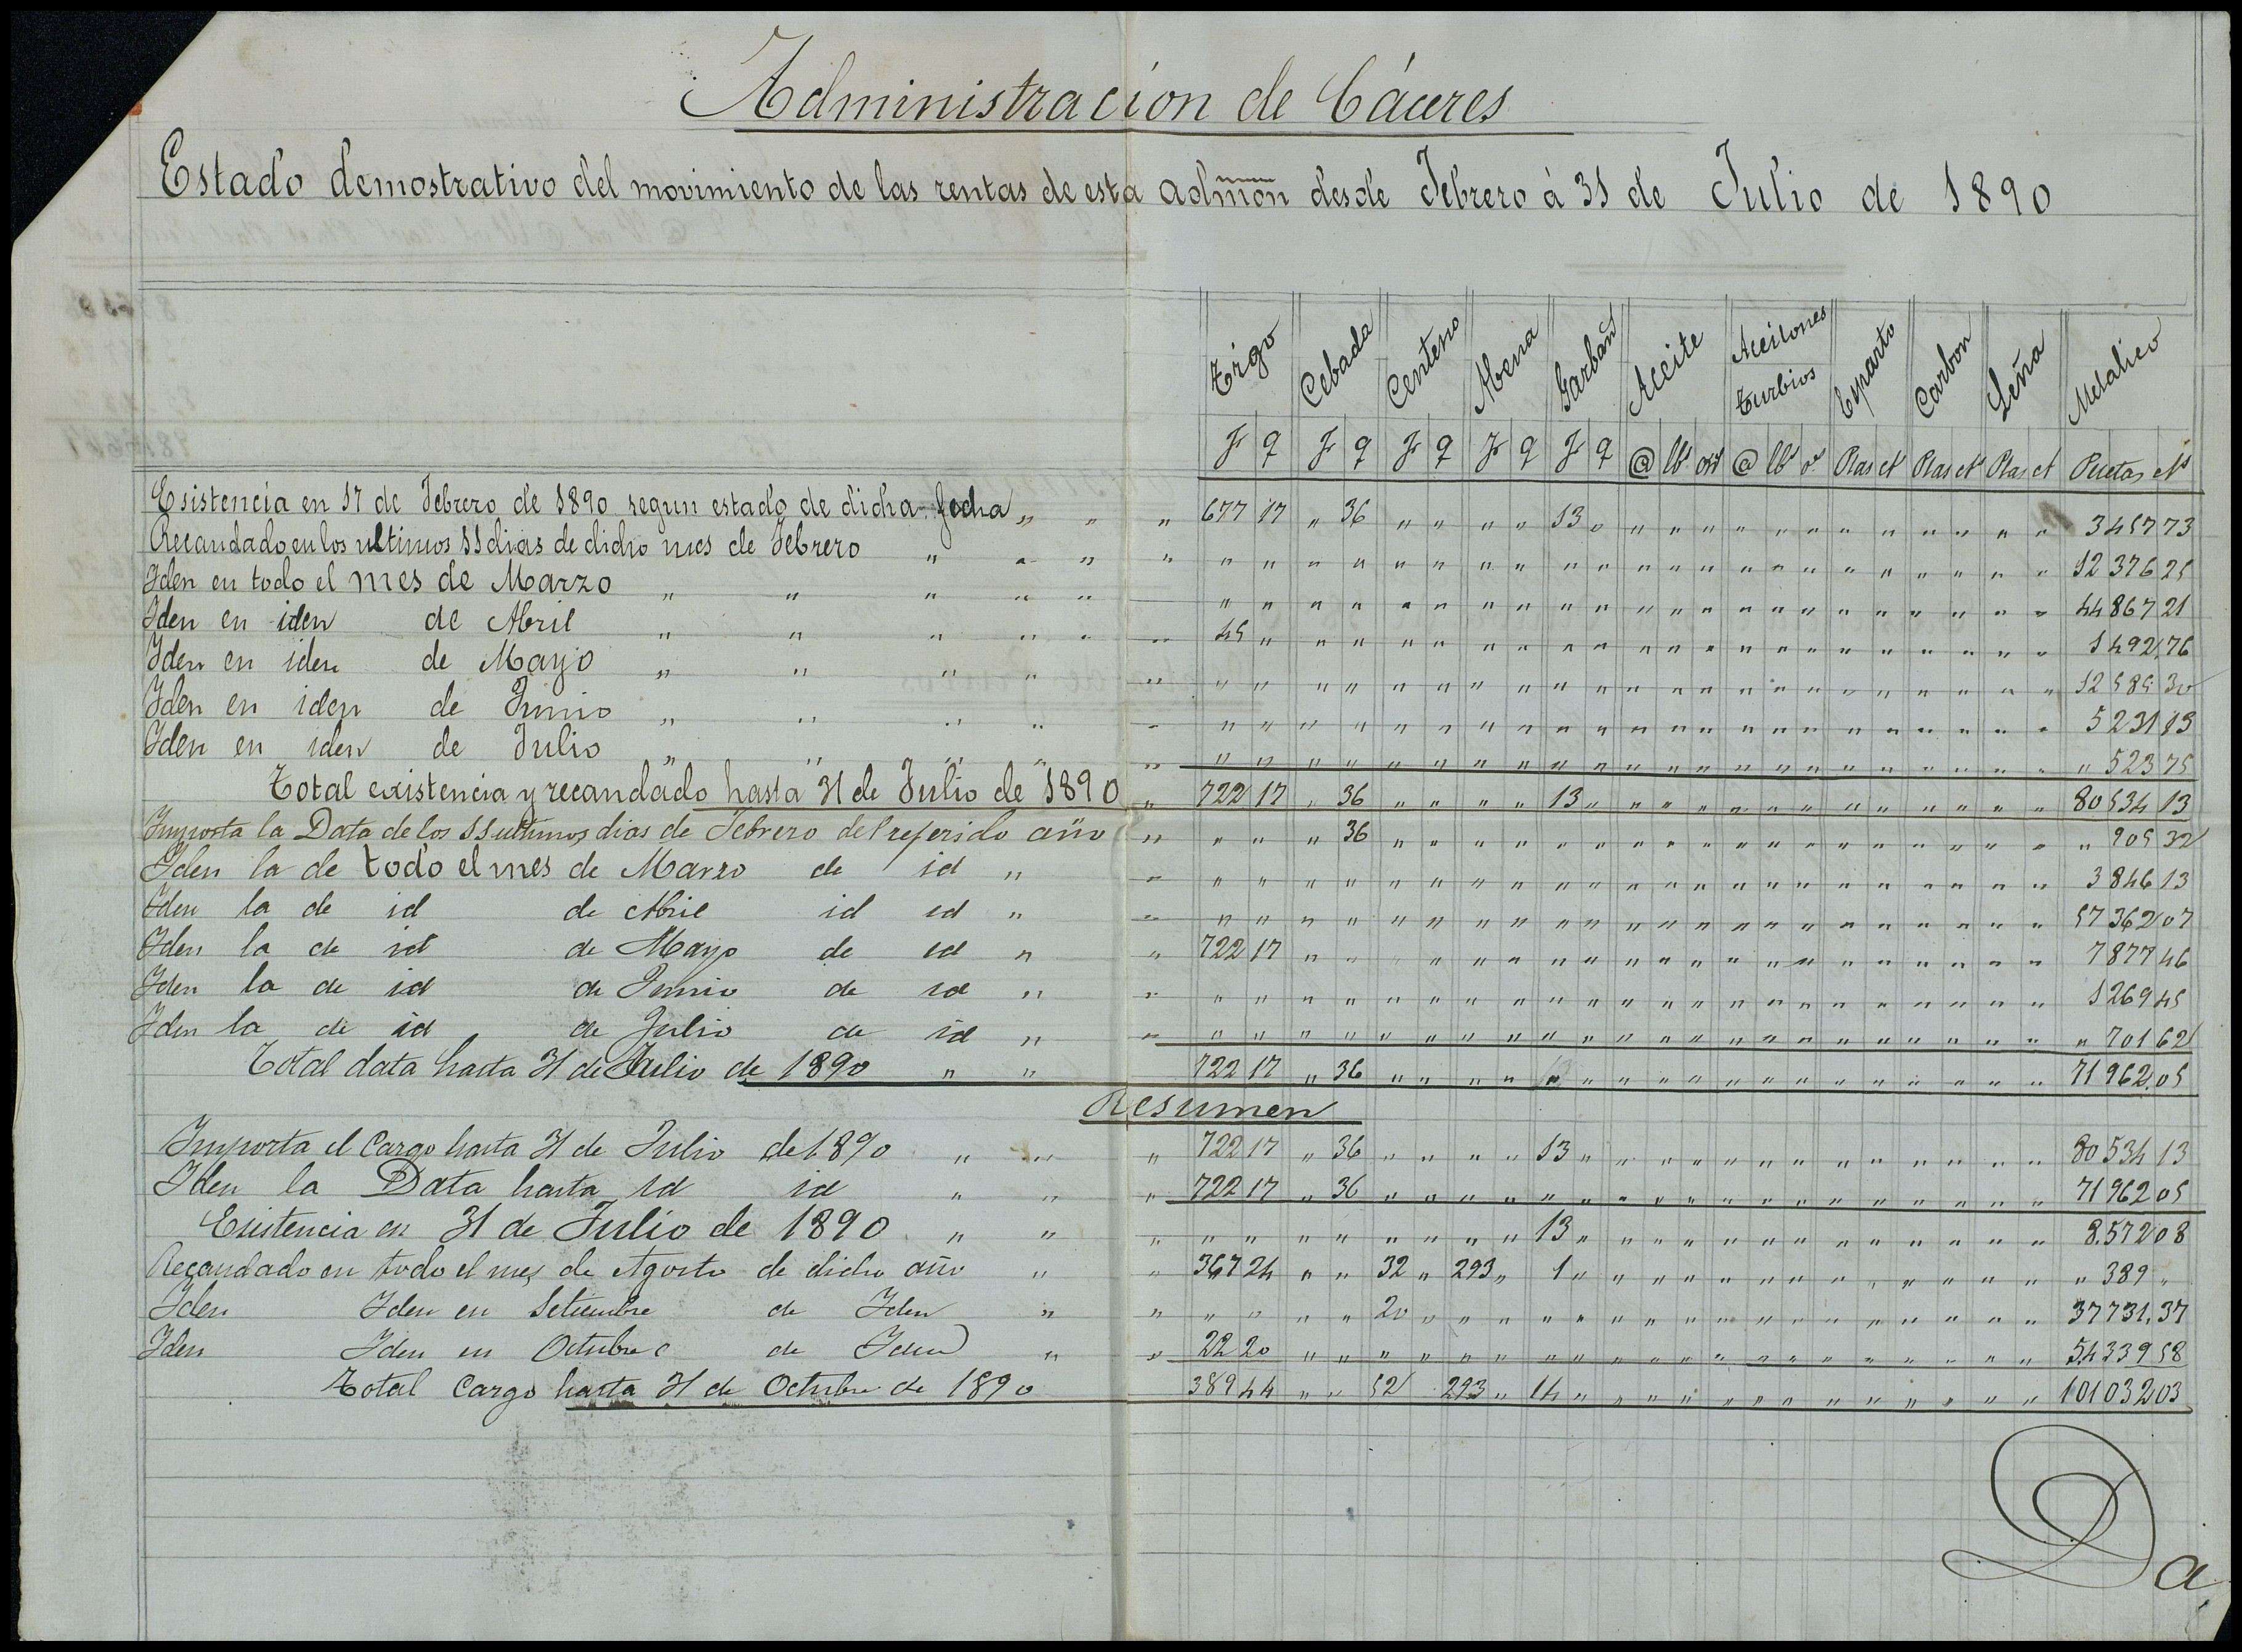 Administración de Cáceres
Estado demostrativo del movimiento de las rentas de esta admon desde Febrero à 31 de Julio de 1890
Trigo Cebada Centeno Abena Garban Aceite Aceitones Turbios Esparto Carbon Leña Metalico
F q F q F q F q F q @ lbs @ lbs Ptas ct Ptas cts Ptas ct Pesetas cts
Esistencia en 17 de Febrero de 1890 segun estado de dicha fecha „ „ „ 677 17 „ 36 „ „ „ „ 13 „ „ „ „ „ „ „ „ „ „ „ „ „ 3457 73
Recaudado en los ultimos 11 dias de dicho mes de Febrero „ „ „ „ „ „ „ „ „ „ „ „ „ „ „ „ „ „ „ „ „ „ „ „ „ „ 12 376 25
Iden en todo el mes de Marzo „ „ „ „ „ „ „ „ „ „ „ „ „ „ „ „ „ „ „ „ „ „ „ „ „ „ „ 44 867 21
Iden en iden de Abril „ „ „ „ „ „ 45 „ „ „ „ „ „ „ „ „ „ „ „ „ „ „ „ „ „ „ „ „ 1 492,76
Iden en iden de Mayo „ „ „ „ „ „ „ „ „ „ „ „ „ „ „ „ „ „ „ „ „ „ „ „ „ „ „ 12 585 30
Iden en iden de Junio „ „ „ „ „ „ „ „ „ „ „ „ „ „ „ „ „ „ „ „ „ „ „ „ „ „ „ 5 231 13
Iden en iden de Julio „ „ „ „ „ „ „ „ „ „ „ „ „ „ „ „ „ „ „ „ „ „ „ „ „ „ „ „ 523 75
Total existencia y recaudado hasta 31 de Julio de 1890 „ 722 17 „ 36 „ „ „ „ 13 „ „ „ „ „ „ „ „ „ „ „ „ „ 80 534 13
Importa la Data de los 11 ultimos dias de Febrero del referido año „ „ „ „ 36 „ „ „ „ „ „ „ „ „ „ „ „ „ „ „ „ „ „ „ 905 32
Iden la de todo el mes de Marzo de id „ „ „ „ „ „ „ „ „ „ „ „ „ „ „ „ „ „ „ „ „ „ „ „ 3 846 13
Iden la de id de Abril id id „ „ „ „ „ „ „ „ „ „ „ „ „ „ „ „ „ „ „ „ „ „ „ „ 57 362 07
Iden la de id de Mayo de id „ „ 722 17 „ „ „ „ „ „ „ „ „ „ „ „ „ „ „ „ „ „ „ „ 7 877 46
Iden la de id de Junio de id „ „ „ „ „ „ „ „ „ „ „ „ „ „ „ „ „ „ „ „ „ „ „ „ 1 269 45
Iden la de id de Julio de id „ „ „ „ „ „ „ „ „ „ „ „ „ „ „ „ „ „ „ „ „ „ „ „ „ 701 62
Total data hasta 31 de Julio de 1890 „ „ 722 17 „ 36 „ „ „ „ „ „ „ „ „ „ „ „ „ „ „ „ „ „ 71 962.05
Resumen
Importa el Cargo hasta 31 de Julio de 1890 „ „ „ 722 17 „ 36 „ „ „ „ 13 „ „ „ „ „ „ „ „ „ „ „ „ „ 80 534 13
Iden la Data hasta id id „ „ „ 722 17 „ 36 „ „ „ „ „ „ „ „ „ „ „ „ „ „ „ „ „ „ 71 962 05
Esistencia en 31 de Julio de 1890 „ „ „ „ „ „ „ „ „ „ „ 13 „ „ „ „ „ „ „ „ „ „ „ „ „ 8.572 08
Recaudado en todo el mes de Agosto de dicho año „ „ 367 24 „ „ 32 „ 293 „ 1 „ „ „ „ „ „ „ „ „ „ „ „ „ „ 389 „
Iden Iden en Setiembre de Iden „ „ „ „ „ „ 20 „ „ „ „ „ „ „ „ „ „ „ „ „ „ „ „ „ 37 731,37
Iden Iden en Octubre de Iden „ „ 22 20 „ „ „ „ „ „ „ „ „ „ „ „ „ „ „ „ „ „ „ „ 54 339 58
Total Cargo hasta 31 de Octubre de 1890 389 44 „ „ 52 293 „ 14 „ „ „ „ „ „ „ „ „ „ „ „ „ 101 032 03
Da